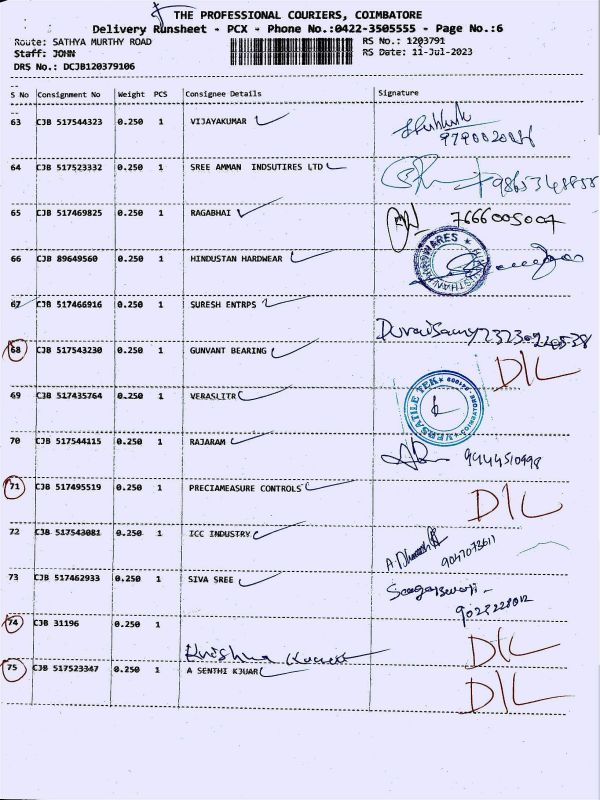 THE PROFESSIONAL COURIERS, COIMBATORE
Delivery Runsheet - PCX - Phone No.:0422-3505555 - Page No.:6
Route: SATHYA MURTHY ROAD RS No.: 1203791
Staff: JOHN RS Date: 11-Jul-2023
DRS No.: DCJB120379106
S No Consignment No Weight PCS Consignee Details Signature
63 CJB 517544323 0.250 1 VIJAYAKUMAR
64 CJB 517523332 0.250 1 SREE AMMAN INDSUTIRES LTD
65 CJB 517469825 0.250 1 RAGABHAI 7666005007
66 CJB 89649560 0.250 1 HINDUSTAN HARDWARE
67 CJB 517466916 0.250 1 SURESH ENTRPS
68 CJB 517543230 0.250 1 GUNVANT BEARING D/L
69 CJB 517435764 0.250 1 VERASLITR VERSATILE TEK
70 CJB 517544115 0.250 1 RAJARAM 9444510998
71 CJB 517495519 0.250 1 PRECIAMEASURE CONTROLS D/L
72 CJB 517543081 0.250 1 ICC INDUSTRY
73 CJB 517462933 0.250 1 SIVA SREE
74 CJB 31196 0.250 1 D/L
Krishna
75 CJB 517523347 0.250 1 A SENTHI KJUAR D/L